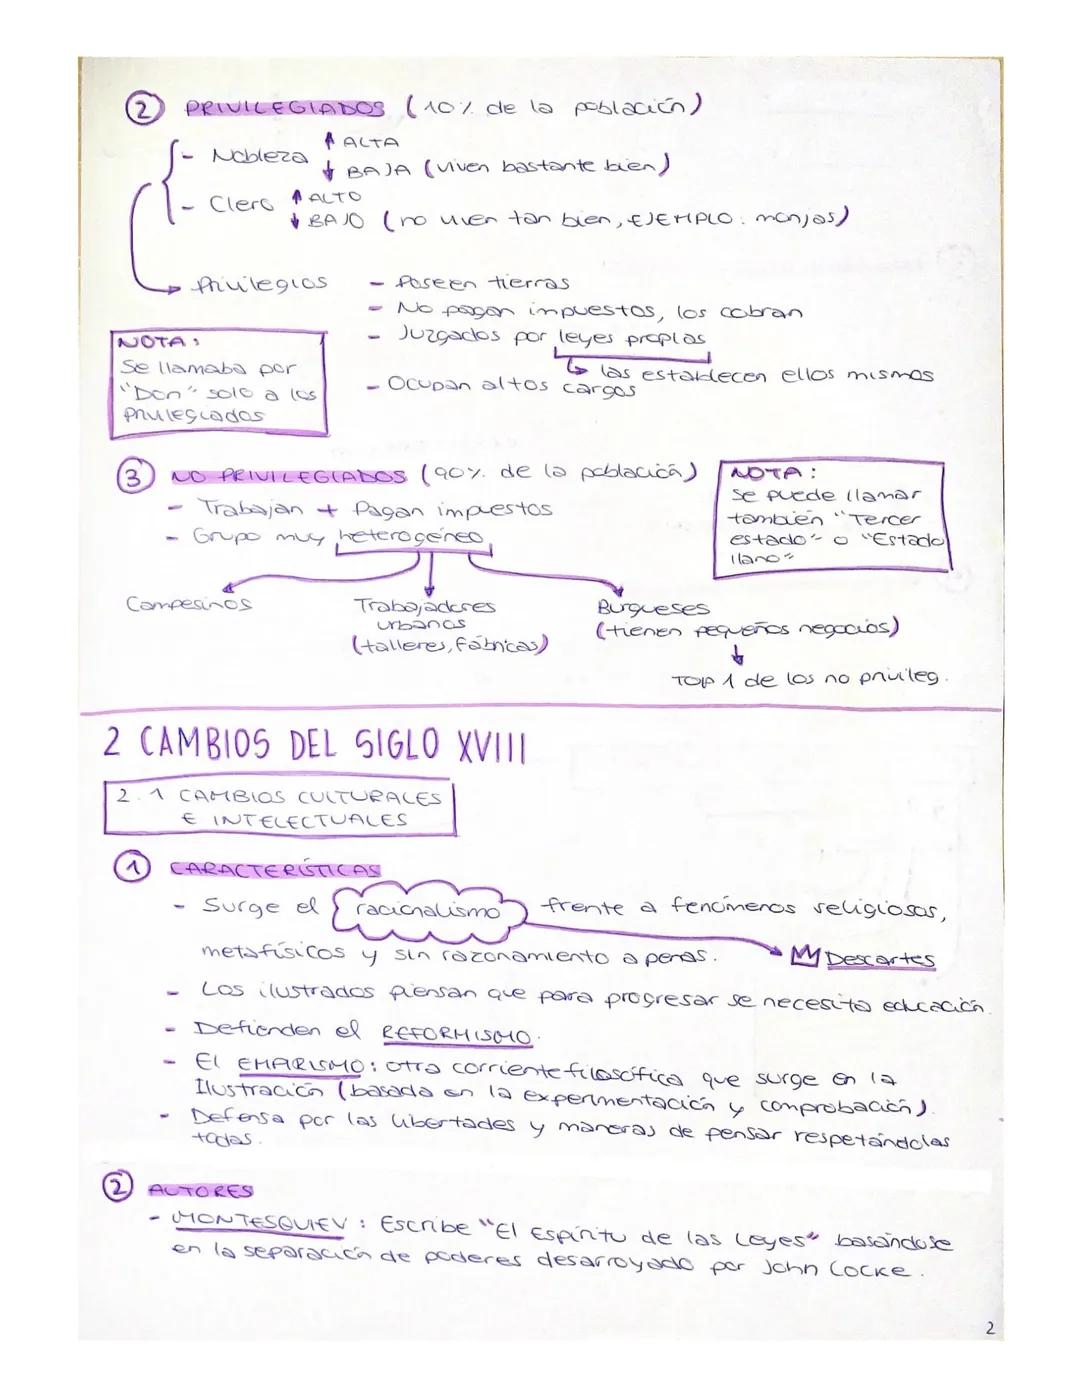 2 PRIVILEGIADOS (10% de la población)
- Nobleza ↑ ALTA
↓ BAJA (viven bastante bien)
- Clero ↑ ALTO
↓ BAJO (no viven tan bien, EJEMPLO: monjas)
Privilegios - Poseen tierras
- No pagan impuestos, los cobran
- Juzgados por leyes propias
↳ las establecen ellos mismos
- Ocupan altos cargos
NOTA:
Se llamaba por
"Don" solo a los
privilegiados
3 NO PRIVILEGIADOS (90% de la población)
- Trabajan + Pagan impuestos
- Grupo muy heterogéneo
NOTA:
Se puede llamar
también "Tercer
estado" o "Estado
llano"
Campesinos
Trabajadores
urbanos
(talleres, fábricas)
Burgueses
(tienen pequeños negocios)
↓
TOP 1 de los no privileg.
2 CAMBIOS DEL SIGLO XVIII
2.1 CAMBIOS CULTURALES
E INTELECTUALES
1 CARACTERÍSTICAS
- Surge el racionalismo frente a fenómenos religiosos,
metafísicos y sin razonamiento apenas. Descartes
- Los ilustrados piensan que para progresar se necesita educación.
- Defienden el REFORMISMO.
- El EMPIRISMO: otra corriente filosófica que surge en la
Ilustración (basada en la experimentación y comprobación).
- Defensa por las libertades y maneras de pensar respetándolas
todas.
2 AUTORES
- MONTESQUIEU: Escribe "El Espíritu de las Leyes" basándose
en la separación de poderes desarroyado por John Locke.
2